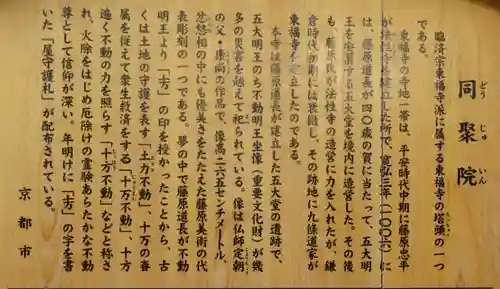 同聚院
どうじゅいん
臨済宗東福寺派に属する東福寺の塔頭の一つ
である。
東福寺の寺地一帯は、平安時代中期に藤原忠平
が法性寺を建立した所で、寛弘三年（一〇〇六）に
は、藤原道長が四〇歳の賀に当たって、五大明
王を安置する五大堂を境内に造営した。その後
も、藤原氏が法性寺の造営に力を入れたが、鎌
倉時代初期には衰微し、その跡地に九條道家が
東福寺を建立したのである。
本寺は藤原道長が建立した五大堂の遺跡で、
五大明王のうち不動明王坐像（重要文化財）が幾
多の災害を越えて祀られている。像は仏師定朝
の父・康尚の作品で、像高二六五センチメートル、
忿怒相の中にも優美さをたたえた藤原美術の代
表彫刻の一つである。夢の中で藤原道長が不動
明王より「𡈽」の印を授かったことから、古
くは土地の守護を表す「土力不動」、十万の眷
属を従えて衆生救済をする「十万不動」、十方
遍く不動の力を照らす「十方不動」などと称さ
れ、火除をはじめ厄除けの霊験あらたかな不動
尊として信仰が深い。年明けに「𡈽」の字を書
いた「屋守護札」が配布されている。
京都市